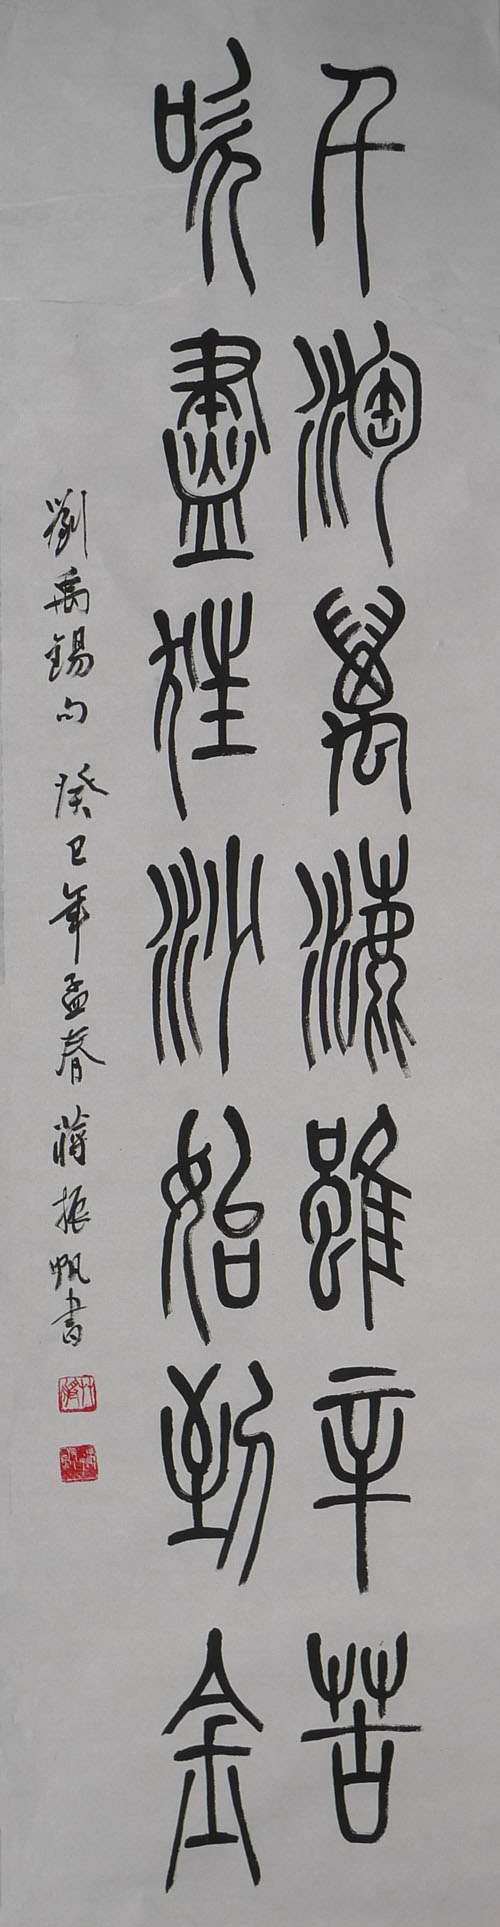 千淘萬漉雖辛苦
吹盡狂沙始到金
劉禹錫句 癸巳年孟春 蔣振帆書